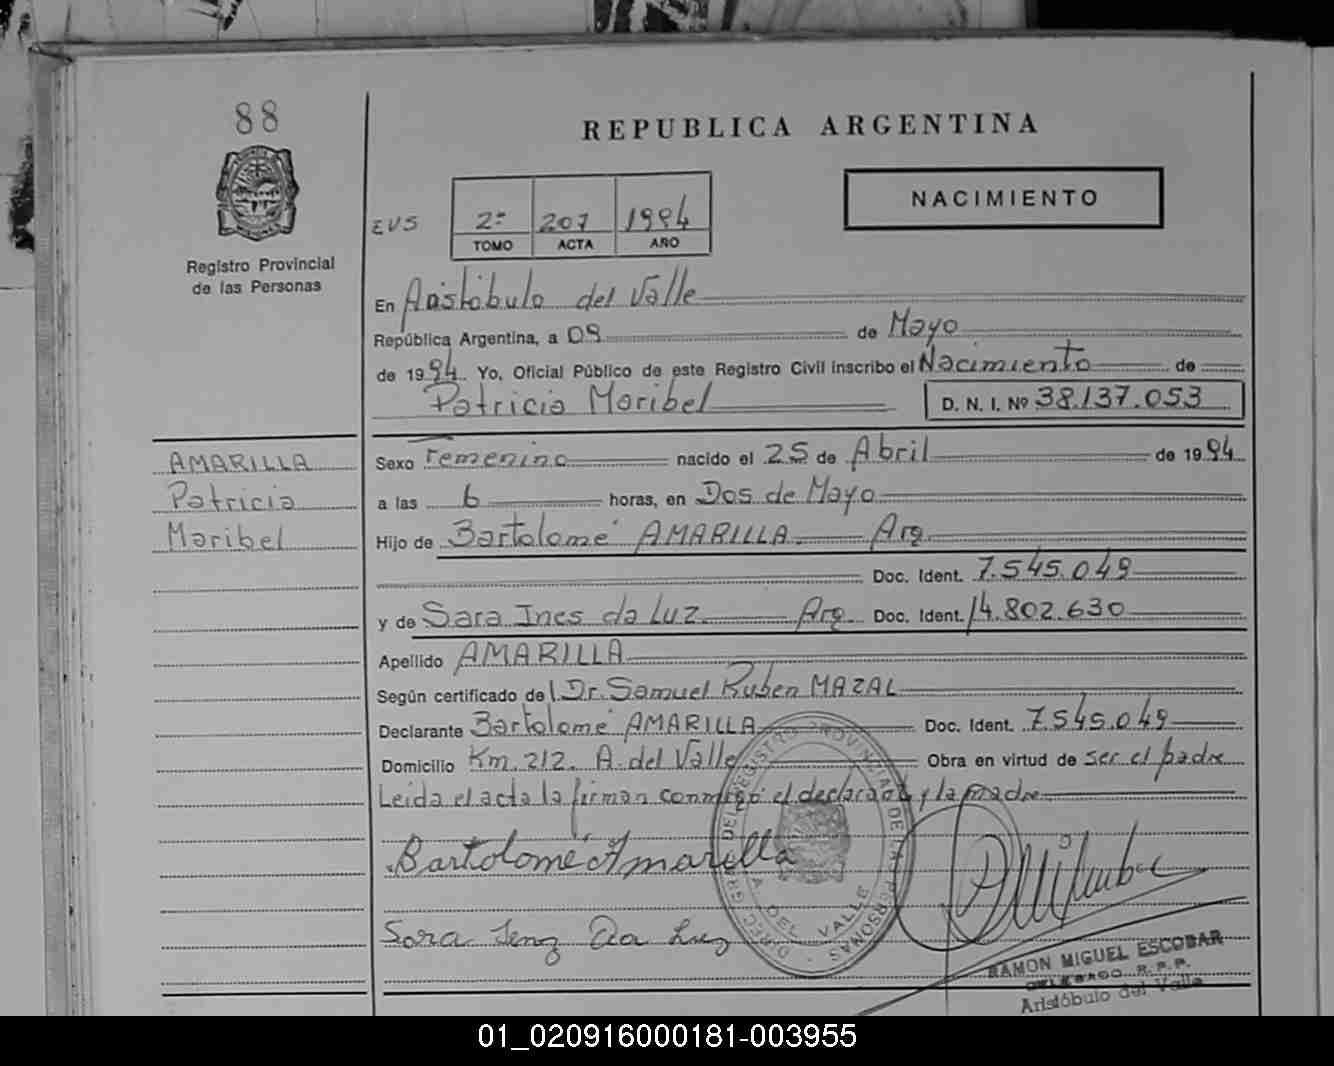 88
REPUBLICA ARGENTINA
NACIMIENTO
EVS 2º 207 1994
TOMO ACTA AÑO
Registro Provincial
de las Personas
En Aristóbulo del Valle
República Argentina, a 09 de Mayo
de 1994 Yo, Oficial Público de este Registro Civil inscribo el Nacimiento de
Patricia Maribel D. N. I. Nº 38.137.053
AMARILLA
Patricia
Maribel
Sexo Femenino nacido el 25 de Abril de 1994
a las 6 horas, en Dos de Mayo
Hijo de Bartolomé AMARILLA. Arg.
Doc. Ident. 7.545.049
y de Sara Ines da Luz. Arg. Doc. Ident. 14.802.630
Apellido AMARILLA
Según certificado del Dr. Samuel Ruben MAZAL
Declarante Bartolomé AMARILLA Doc. Ident. 7.545.049
Domicilio Km. 212. A. del Valle Obra en virtud de ser el padre
Leida el acta la firman conmigo el declarante y la madre
Bartolomé Amarilla
Sara Ines Da Luz
A. DEL VALLE
RAMON MIGUEL ESCOBAR
DELEGADO R. P. P.
Aristóbulo del Valle
01_020916000181-003955